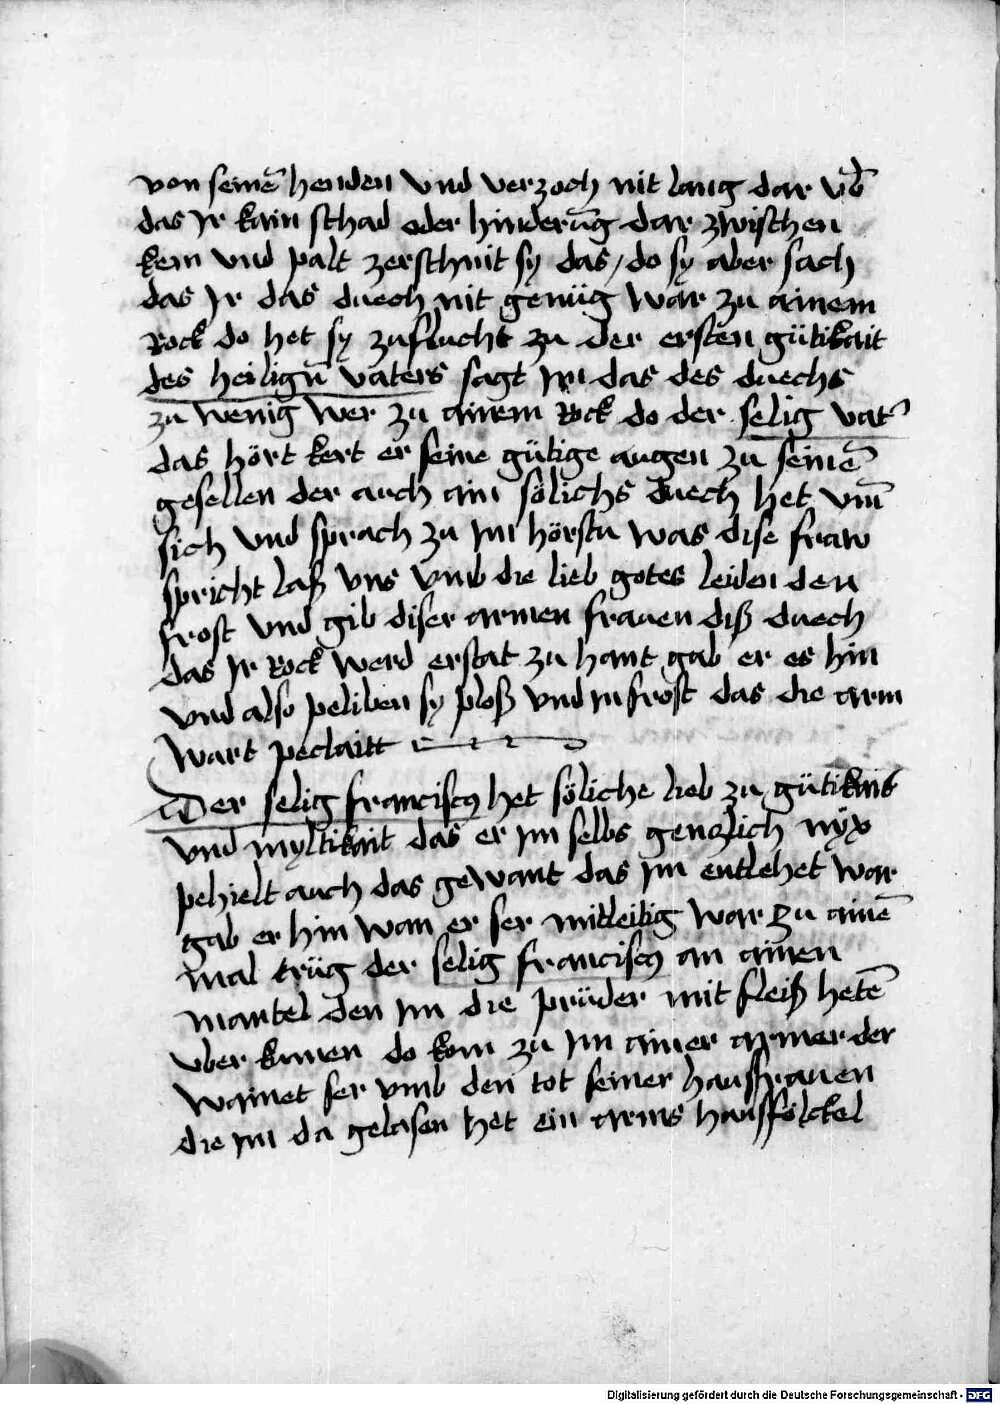 von seinē henden vnd verzoch nit lang dar vō
das Jr kain schad oder hinderūg dar zwischen
kem vnd palt zerschnit sy das / do sy aber sach
das Jr das duech nit genüg war zu ainem
Rock do het sy zuflucht zu der ersten gütikait
des heiligñ vaters sagt im das des duechs
zu wenig wer zu ainem Rock do der selig vat˜
das hört kert er seine gütige augen zu seinē
gesellen der auch ain sölichs duech het vm̄
sich vnd sprach zu im hörstu was dise fraw
spricht laß vns vmb die lieb gotes leiden den
frost vnd gib diser armen frauen diß duech
das Jr Rock werd erstat zu hant gab er es hin
vnd also peliben sy ploß vnd in frost das die arm
wart peclaitt
Der selig franciscꝯ het söliche lieb zu gütikait
vnd myltikait das er im selbs genczlich nyx
pehielt auch das gewant das im entlehet war
gab er hin wan er ser mitleitig war zu ainē
mal trüg der selig franciscꝯ an ainen
mantel den im die prüder mit fleiß hetē
vber kumen do kom zu im ainer armer der
wainet ser vmb den tot seiner haußfrauen
die im da gelasen het ein arms haußfölckel
Digitalisierung gefördert durch die Deutsche Forschungsgemeinschaft - DFG